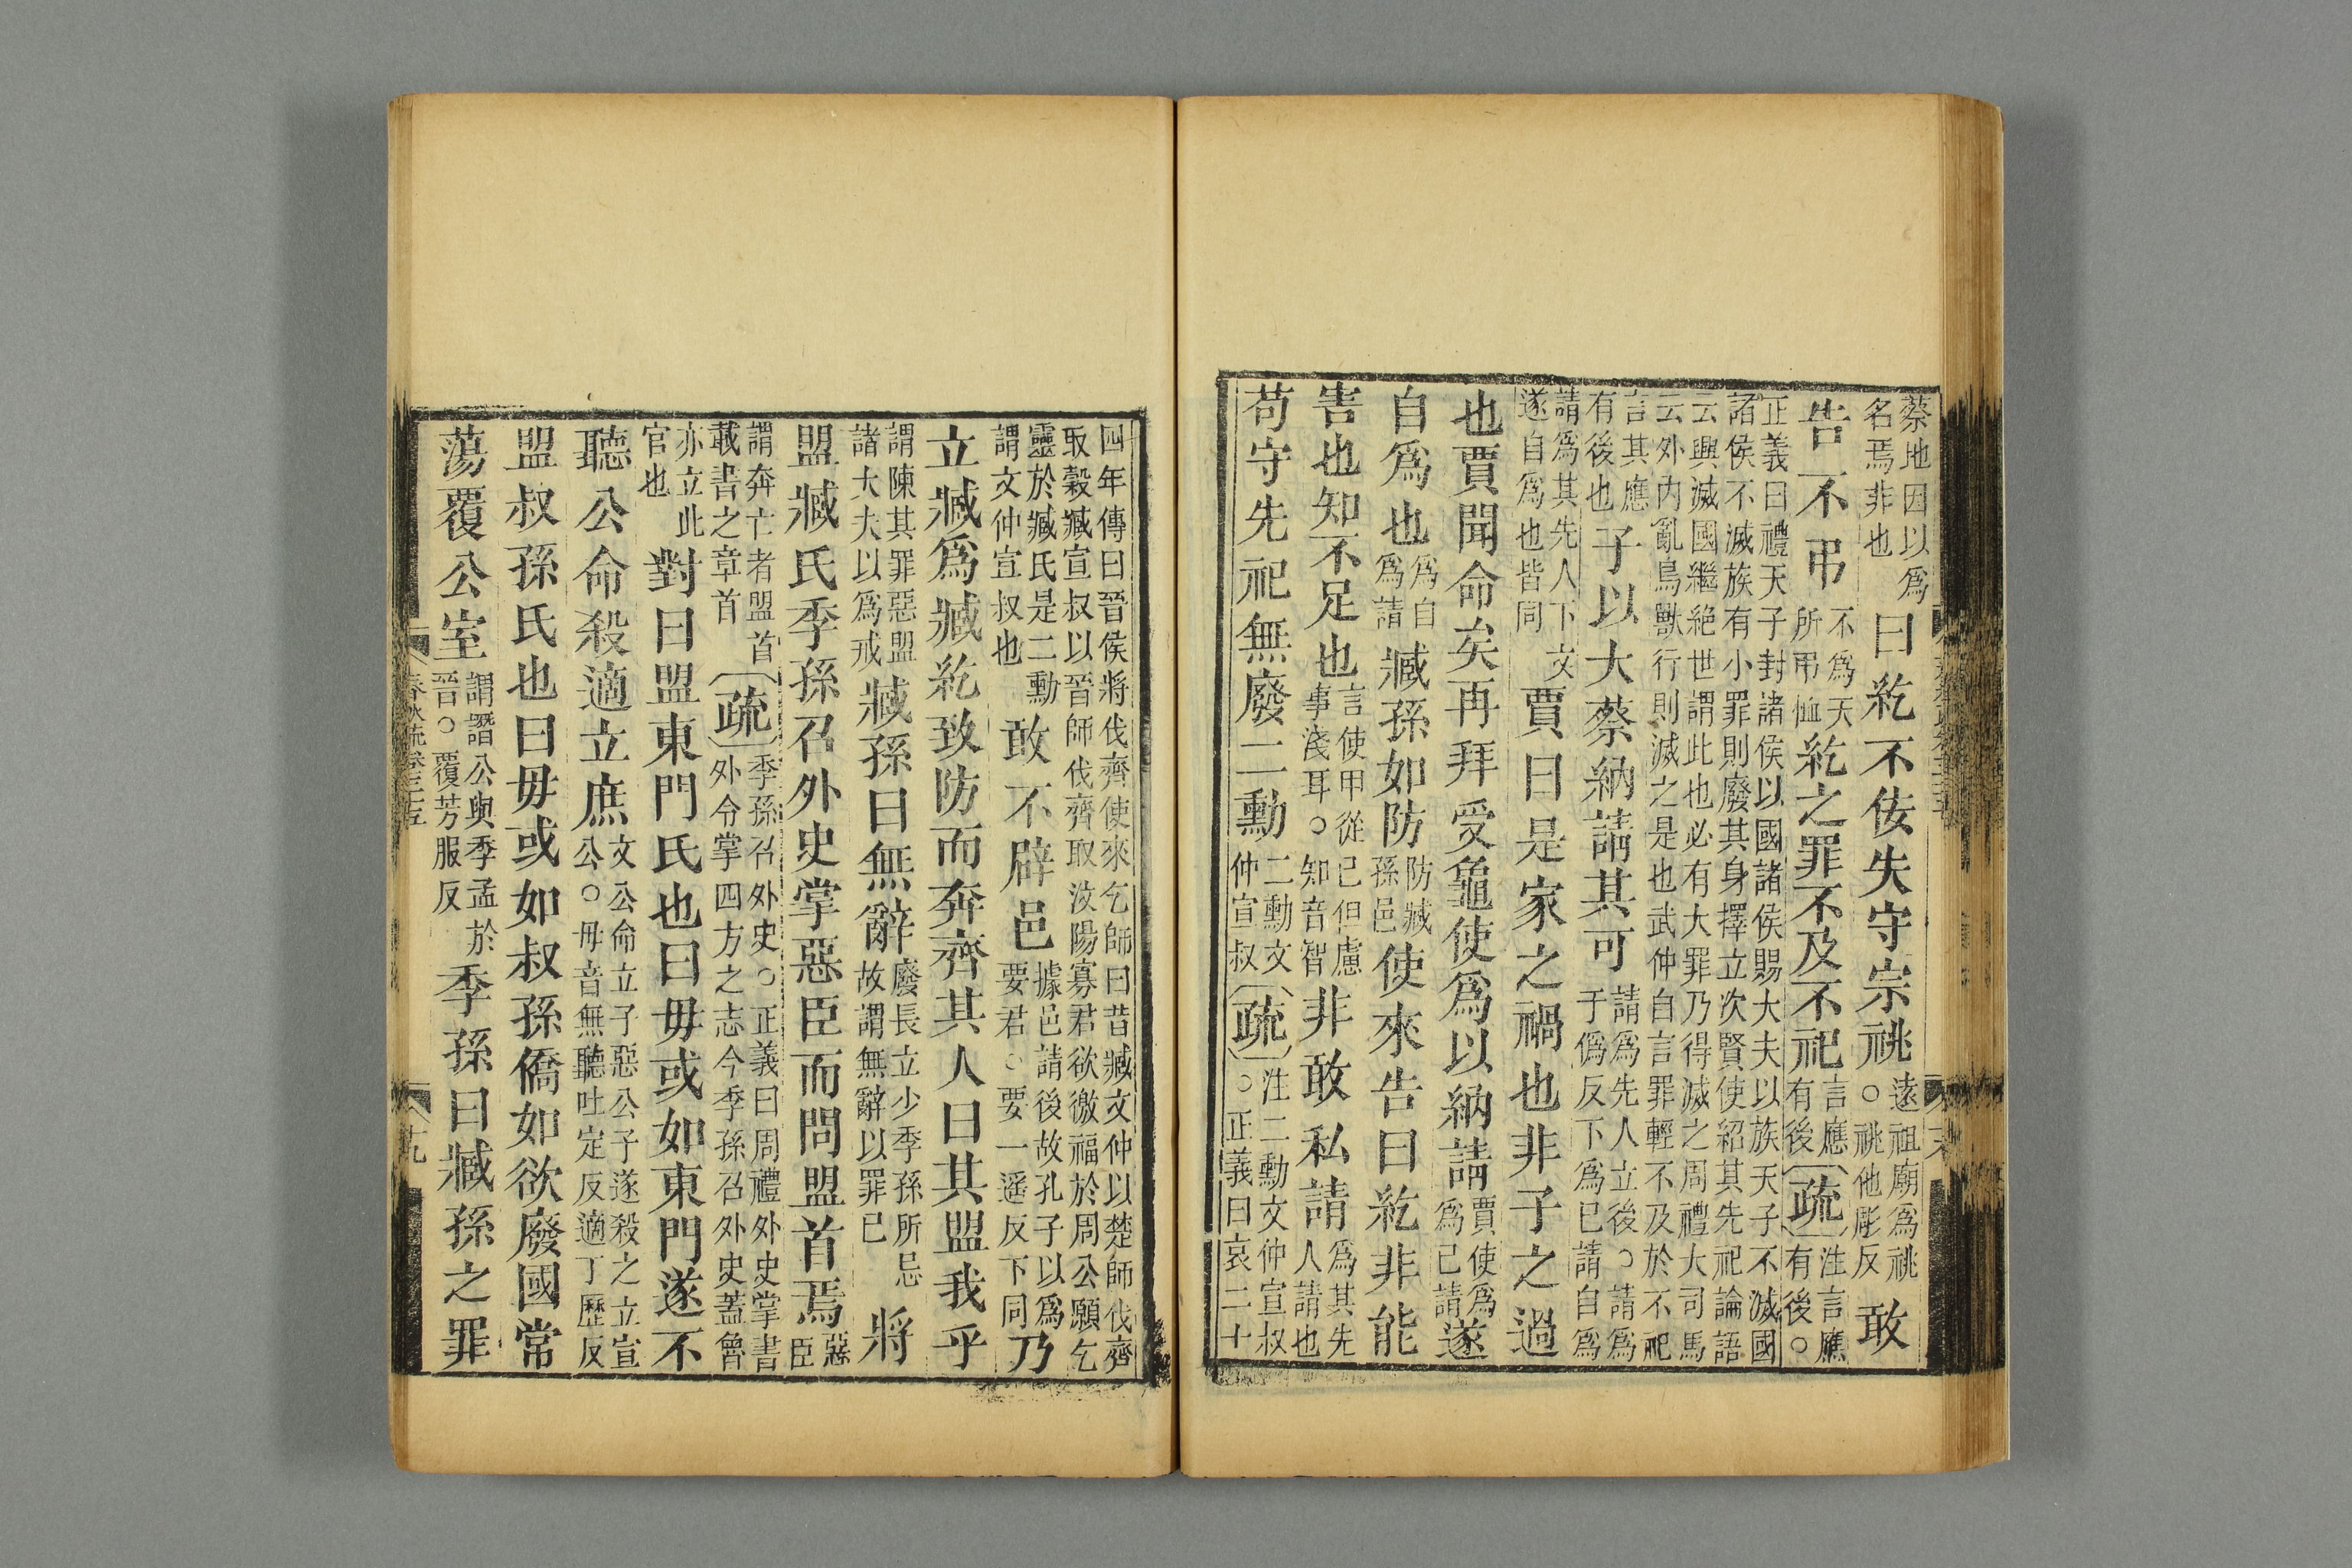 蔡地因以爲
名焉非也
曰紇不佞失守宗祧
遠祖廟爲祧
○祧他彫反
敢
告不弔
不爲天
所弔恤
紇之罪不及不祀
言應
有後
疏
注言應
有後○
正義曰禮天子封諸侯以國諸侯賜大夫以族天子不滅國
諸侯不滅族有小罪則廢其身擇立次賢使紹其先祀論語
云興滅國繼絶世謂此也必有大罪乃得滅之周禮大司馬
云外內亂鳥獸行則滅之是也武仲自言罪輕不及於不祀
言其應
有後也
子以大蔡納請其可
請爲先人立後○請爲
于僞反下爲已請自爲
請爲其先人下文
遂自爲也皆同
賈曰是家之禍也非子之過
也賈聞命矣再拜受龜使爲以納請
賈使爲
爲己請
遂
自爲也
爲自
爲請
臧孫如防
防臧
孫邑
使來告曰紇非能
害也知不足也
言使甲從已但慮
事淺耳○知音智
非敢私請
爲其先
人請也
苟守先祀無廢二勳
二勳文
仲宣叔
疏
注二勳文仲宣叔
○正義曰哀二十
四年傳曰晉侯將伐齊使來乞師曰昔臧文仲以楚師伐齊
取穀臧宣叔以晉師伐齊取汶陽寡君欲徼福於周公願乞
靈於臧氏是二勳
謂文仲宣叔也
敢不辟邑
據邑請後故孔子以爲
要君○要一遥反下同
乃
立臧爲臧紇致防而奔齊其人曰其盟我乎
謂陳其罪惡盟
諸大夫以爲戒
臧孫曰無辭
廢長立少季孫所忌
故謂無辭以罪已
將
盟臧氏季孫召外史掌惡臣而問盟首焉
惡
臣
謂奔亡者盟首
載書之章首
疏
季孫召外史○正義曰周禮外史掌書
外令掌四方之志今季孫召外史蓋魯
亦立此
官也
對曰盟東門氏也曰毋或如東門遂不
聽公命殺適立庶
文公命立子惡公子遂殺之立宣
公○毋音無聽吐定反適丁歷反
盟叔孫氏也曰毋或如叔孫僑如欲廢國常
蕩覆公室
謂譖公與季孟於
晉○覆芳服反
季孫曰臧孫之罪